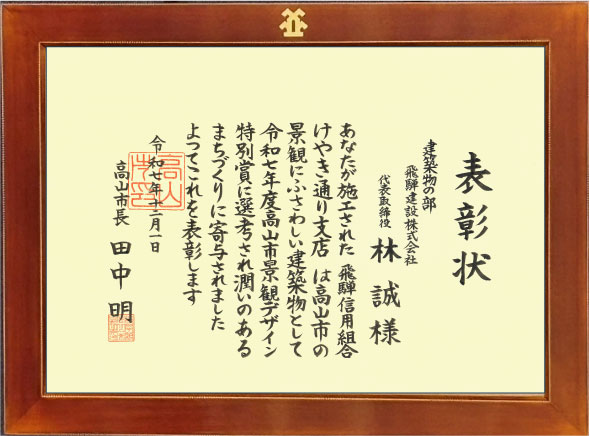 表彰状
建築物の部
飛騨建設株式会社
代表取締役
林誠様
あなたが施工された飛騨信用組合
けやき通り支店は高山市の
景観にふさわしい建築物として
令和七年度高山市景観デザイン
特別賞に選考され潤いのある
まちづくりに寄与されました
よってこれを表彰します
令和七年十二月一日
高山市長
田中明